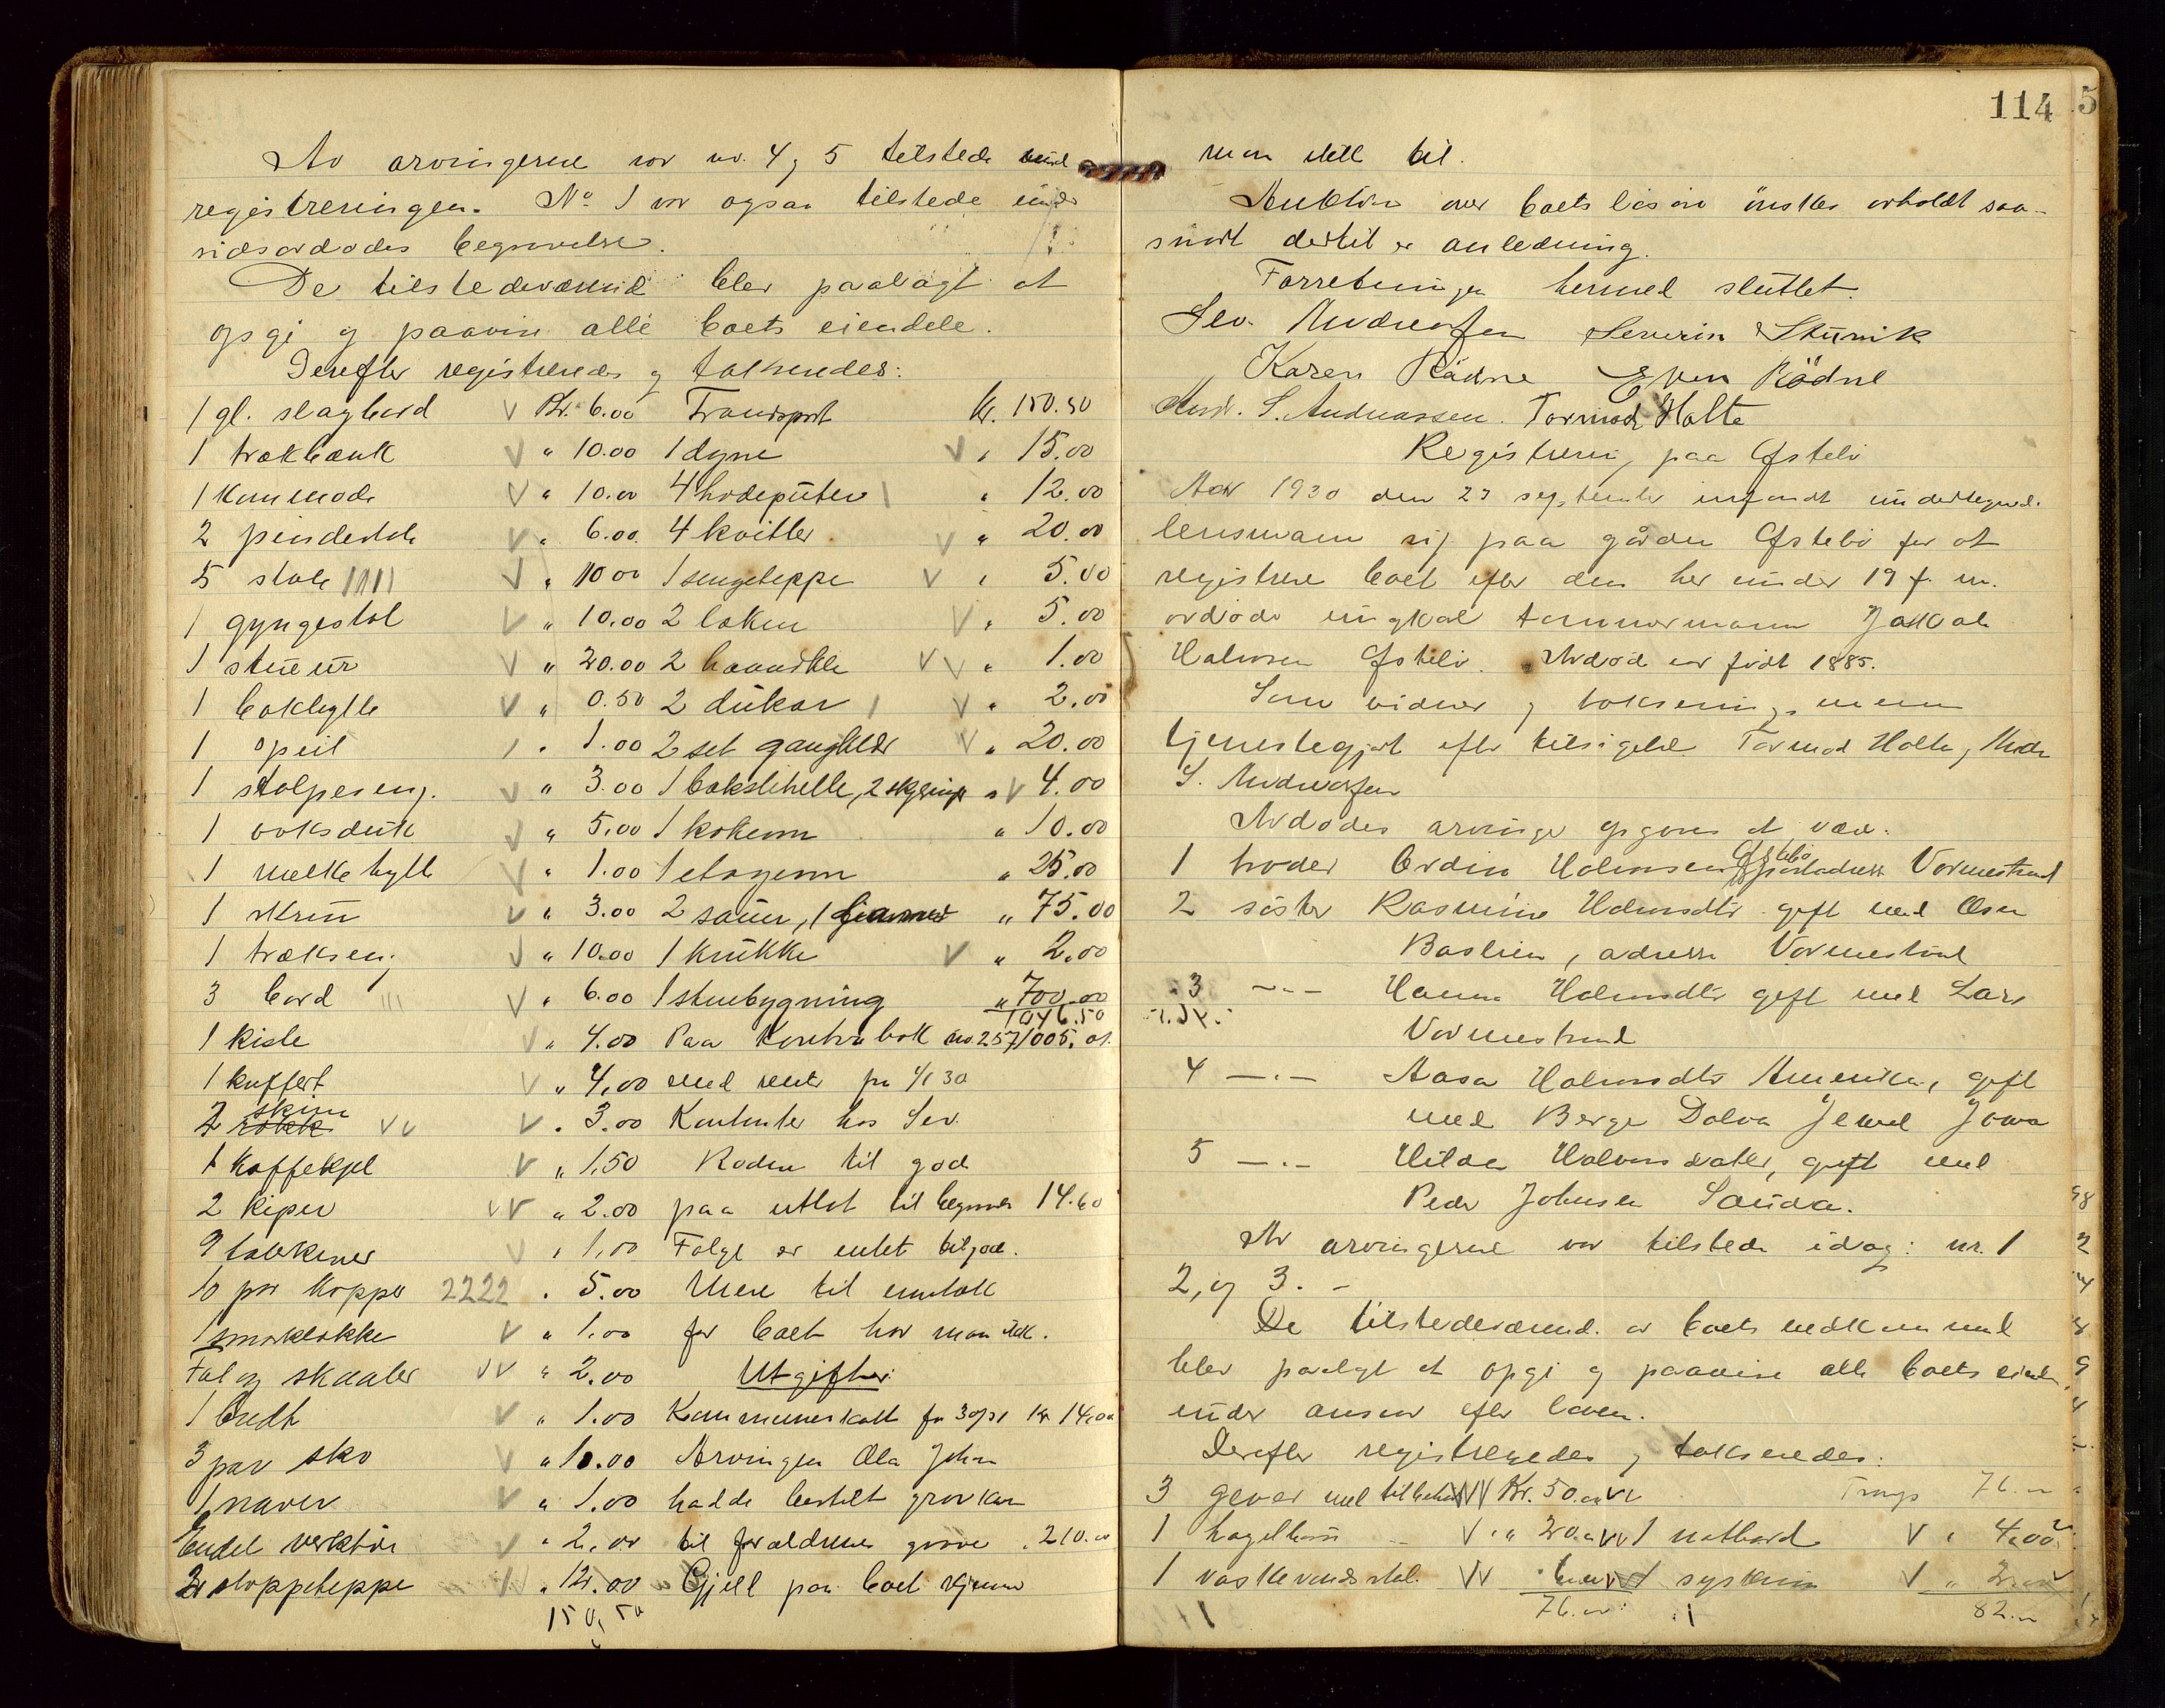 Av arvingerne var nr. 4 og 5 tilstede ved
registreringen. No 1 var ogsaa tilstede under
sidsavdødes begravelse.
De tilstedeværend blev paalagt at
opgi og paavise alle boets eiendele.
Derefter registreredes og takseredes:
1 gl. slagbord V Kr. 6.00
1 trækbænk V " 10.00
1 kommode V " 10.00
2 pindestole V " 6.00
5 stole V " 10.00
1 gyngestol V " 10.00
1 stueur V " 20.00
1 bokhylle V " 0.50
1 speil " 1.00
1 stolpeseng V " 3.00
1 voksduk V " 5.00
1 melkehylle V " 1.00
1 skrin V " 3.00
1 trækseng V " 10.00
3 bord V " 6.00
1 kiste V " 4.00
1 kuffert V " 4.00
2 skrin V " 3.00
1 kaffekjel V " 1.50
2 kiper V " 2.00
9 talerkener V " 1.00
10 par kopper 2222 " 5.00
1 smørklokke V " 1.00
Fat og skaaler VV " 2.00
1 bredt V " 1.00
3 par sko V " 10.00
1 naver V " 1.00
Endel verktøi V " 2.00
2 stoppeteppe " 12.00
150.50
Transport Kr. 150.50
1 dyne V " 15.00
4 hodeputer " 12.00
4 kvitler V " 20.00
1 sengeteppe V " 5.00
2 laken V " 5.00
2 haandklæ VV " 1.00
2 dukar V " 2.00
2 set gangklær V " 20.00
1 bakstehelle, 2 V 4.00
1 kokeovn " 10.00
1 etageovn " 25.00
2 sauer, 1 " 75.00
1 krukke V " 2.00
1 stuebygning " 700.00
1046.50
Paa Kontrabok no 257 1005.01
med renter fra 1/1 30
Kontanter hos Sev.
Rødne til god
paa utlot til begravelse 14.60
Følge er intet tilgode.
Mere til inntækt
for boet har man ikke.
Utgifter:
Kommuneskatt for 30/31 Kr 14.00
Arvingen Ola Johan
hadde bestilt gravkar
til forældrenes grave " 210.00
Gjeld paa boet kjenner
114
5
man ikke til.
Auktion over boets løsøre ønskes avholdt saa-
snart dertil er anledning.
Forretningen hermed sluttet.
Sev. Andreassen Severin Stumik
Karen Rødne Even Rødne
Andr. S. Andreassen. Tormod Holte
Registrering paa Østebø
Aar 1930 den 23 september innfandt undertegned
lensmann sig paa gården Østebø for at
registrere boet efter den her under 19 f. m.
avdøde ungkal tømmermann Jakob
Halvorsen Østebø. Avdød er født 1885.
Som vidner og takseringsmenn
tjenestegjort efter tilsigelse Tormod Holte og Andr
S. Andreassen
Avdødes arvinge opgaves at være:
1 broder Ordin Halvorsen Østebø postadress Vormestrand
2 søster Rasmine Halvorsdtr gift med Osm
Bastlien, adresse Vormestrand
3 —"— Hanna Halvorsdtr gift med Lars
Vormestrand
4 —"— Aasa Halvorsdtr Amerika, gift
med Berge Dalva Jewel Jowa
5 —"— Hilda Halvorsdatter, gift med
Peder Johnsen Sauda.
Av arvingerne var tilstede idag: nr. 1
2, og 3. –
De tilstedeværend. av boets vedkommend
blev paalagt at opgi og paavise alle boets eiendele
under ansvar efter loven.
Derefter registreredes og takseredes:
3 gever med tilbehør VV Kr. 50.00
1 hagelbøss V " 20.00
1 vaskevandsstel VV
76.00
Transp 76.00
1 natbord V " 4.00
1 syskrin V " 2.00
82.00